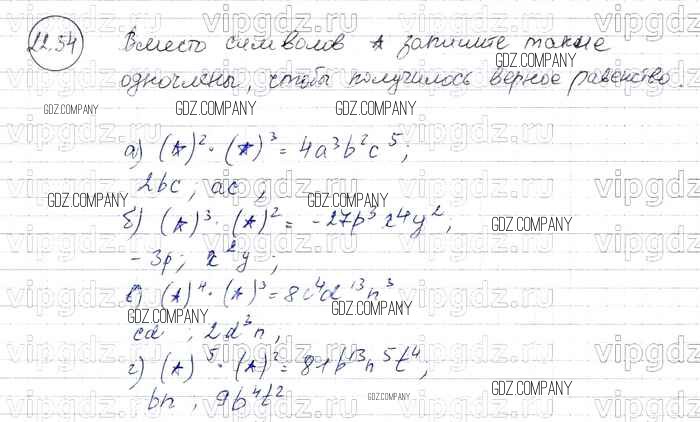 22.54 Вместо символов * запишите такие
одночлены, чтобы получилось верное равенство.
а) (*)² · (*)³ = 4a³b²c⁵;
2bc; ac;
б) (*)³ · (*)² = -27p³x⁴y²;
-3p; x²y;
в) (*)⁴ · (*)³ = 8c⁴d¹³n³
cd; 2d³n,
г) (*)⁵ · (*)² = 81b¹³n⁵t⁴,
bn; 9b⁴t²
GDZ.COMPANY
vipgdz.ru